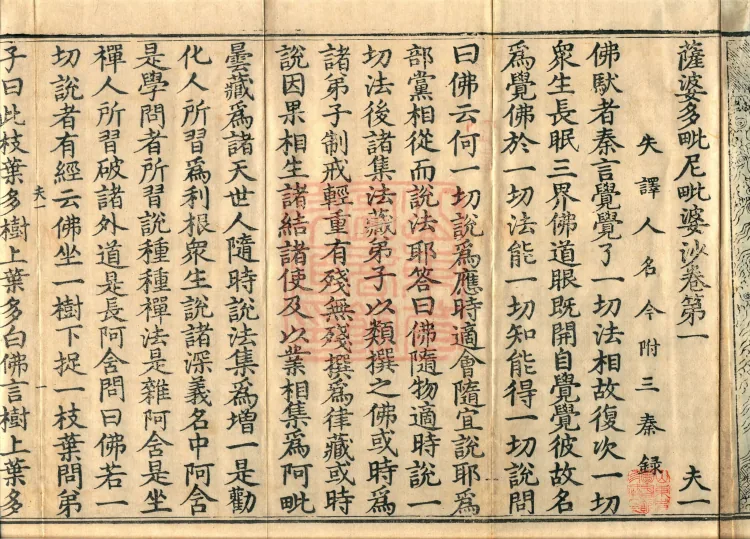 薩婆多毗尼毗婆沙卷第一 夫一
失譯人名今附三秦録
佛馱者秦言覺覺了一切法相故復次一切
衆生長眠三界佛道眼既開自覺覺彼故名
爲覺佛於一切法能一切知能得一切說問
曰佛云何一切說爲應時適會隨宜說耶爲
部黨相從而說法耶答曰佛隨物適時說一
切法後諸集法藏弟子以類撰之佛或時爲
諸弟子制戒輕重有殘無殘撰爲律藏或時
說因果相生諸結諸使及以業相集爲阿毗
曇藏爲諸天世人隨時說法集爲增一是勸
化人所習爲利根衆生說諸深義名中阿含
是學問者所習說種種禪法是雜阿含是坐
禪人所習破諸外道是長阿含問曰佛若一
切說者有經云佛坐一樹下捉一枝葉問弟
夫一 一
子曰此枝葉多樹上葉多白佛言樹上葉多